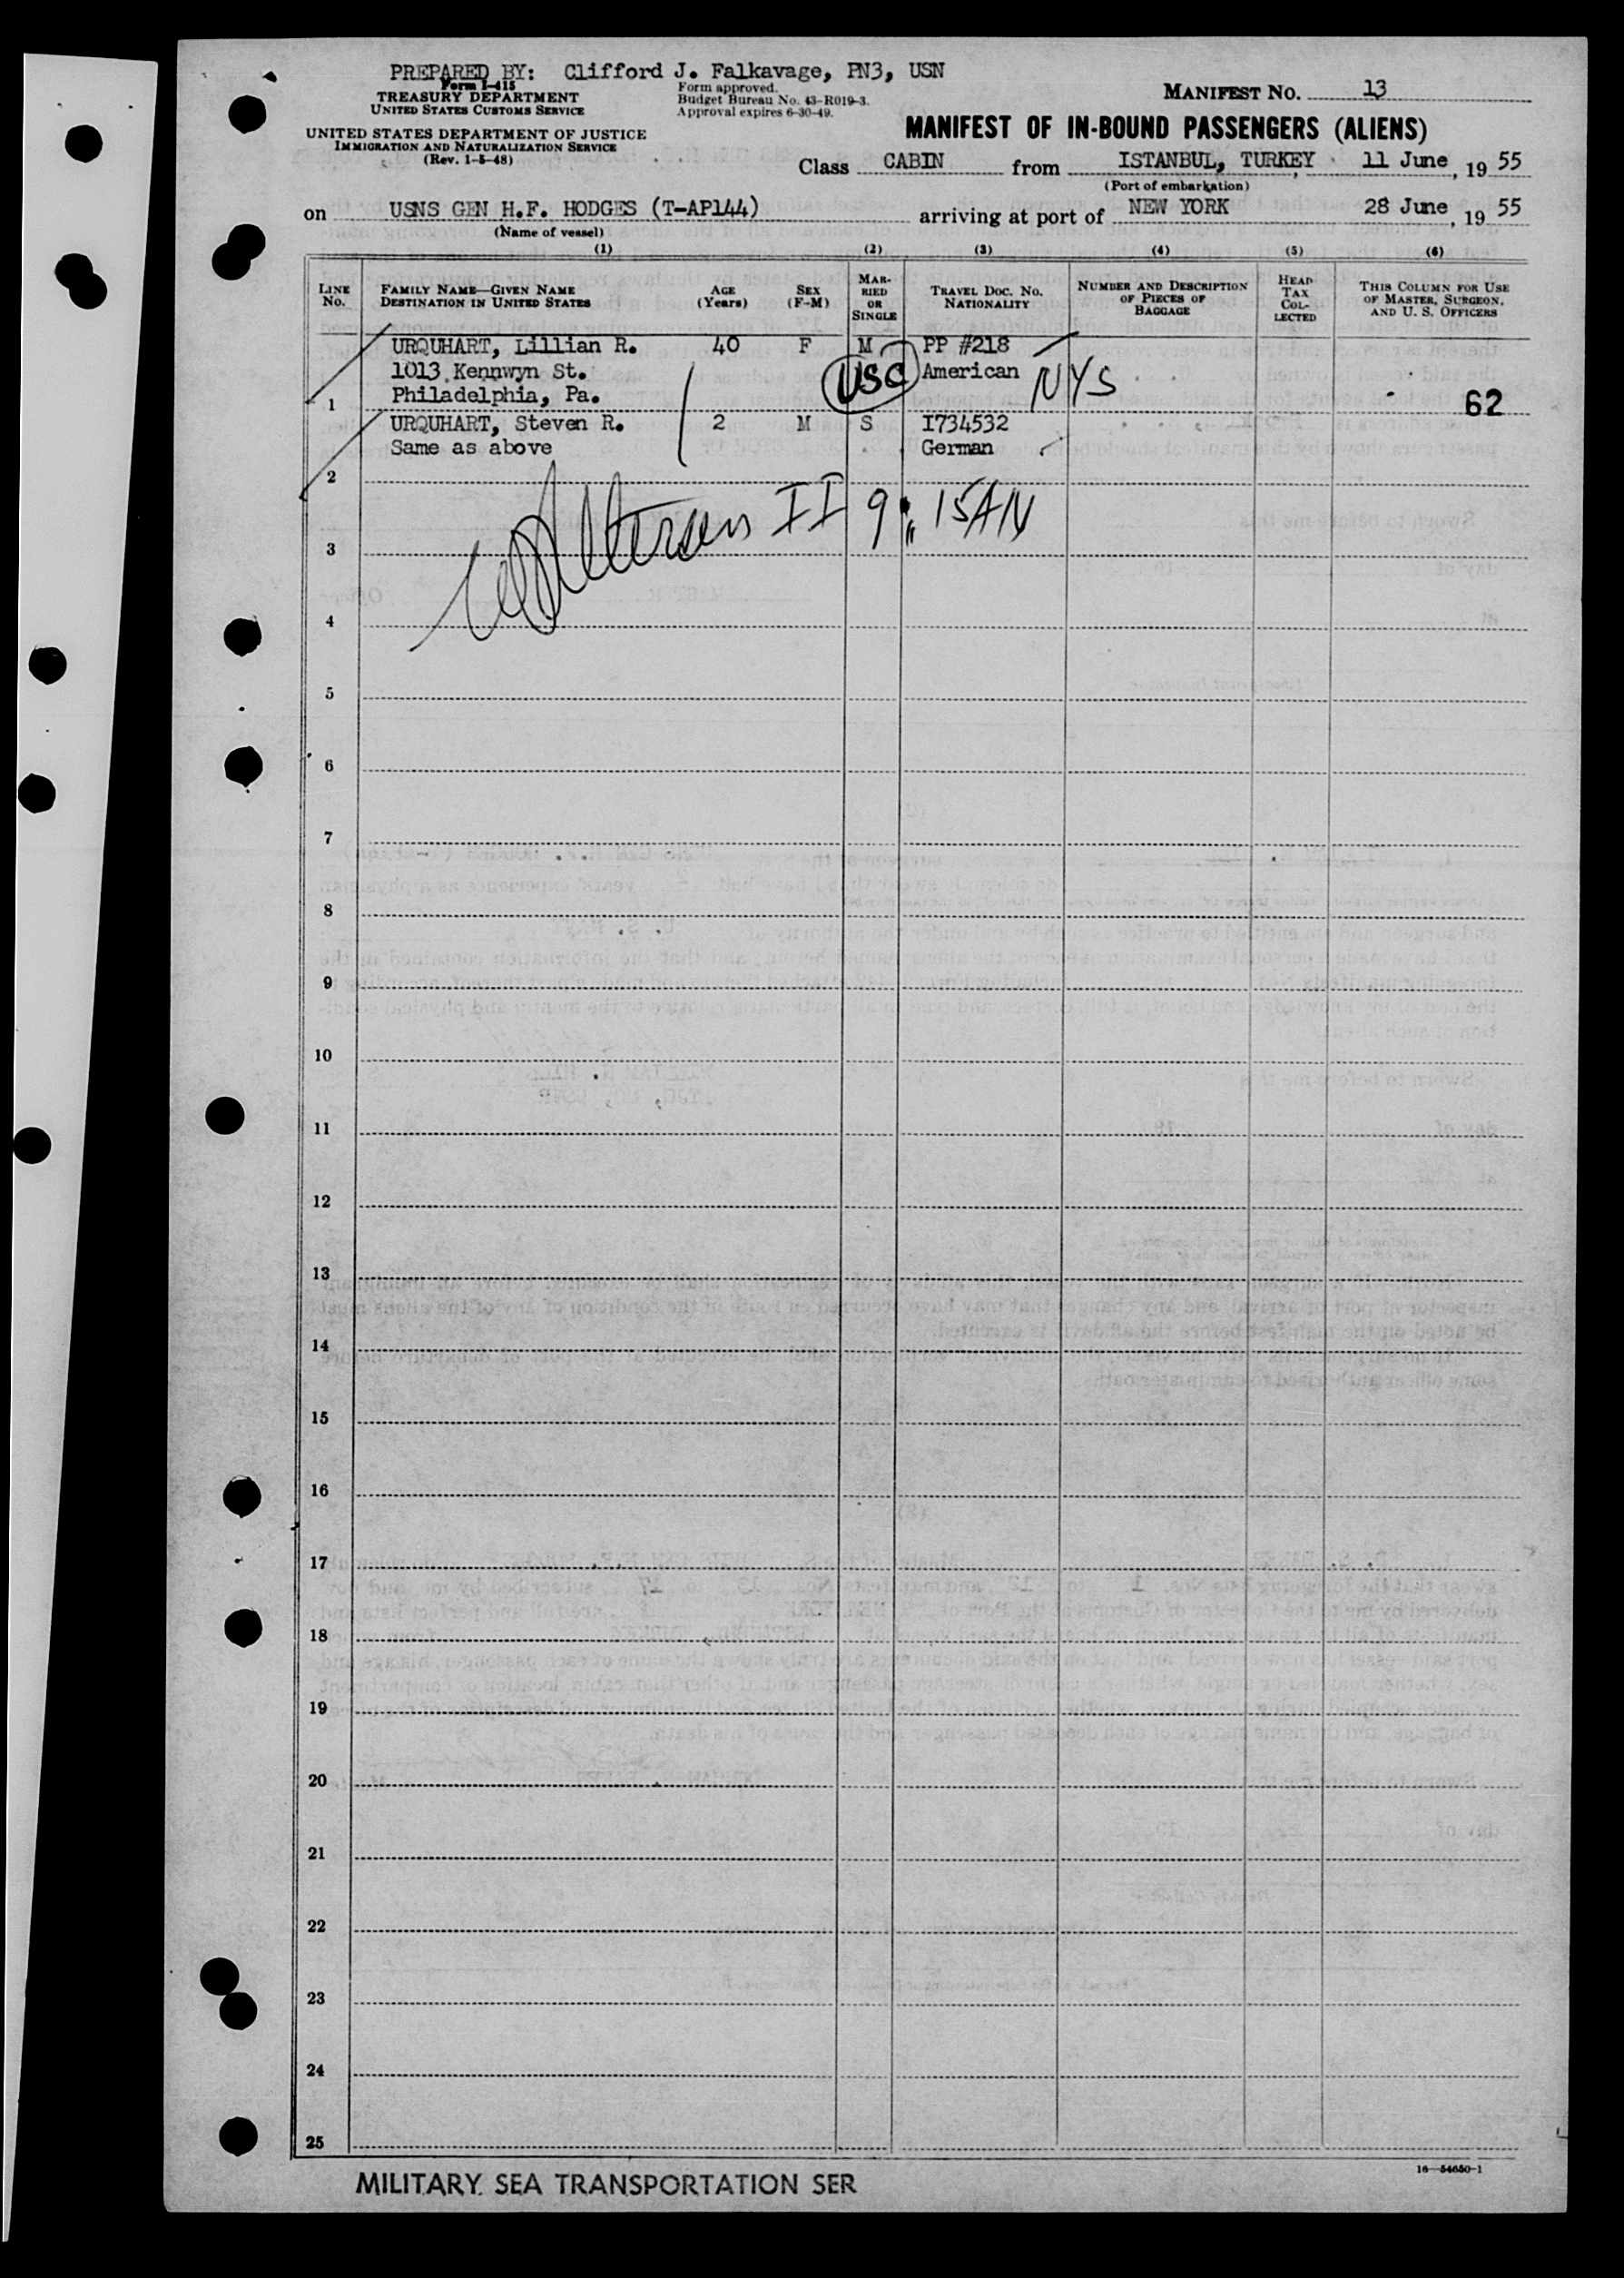 PREPARED BY: Clifford J. Falkavage, PN3, USN
Form I-415
TREASURY DEPARTMENT
UNITED STATES CUSTOMS SERVICE
Form approved.
Budget Bureau No. 43-R019-3.
Approval expires 6-30-49.
MANIFEST NO. 13
UNITED STATES DEPARTMENT OF JUSTICE
IMMIGRATION AND NATURALIZATION SERVICE
(Rev. 1-5-48)
MANIFEST OF IN-BOUND PASSENGERS (ALIENS)
Class CABIN from ISTANBUL, TURKEY, 11 June, 19 55
(Port of embarkation)
on USNS GEN H.F. HODGES (T-AP144) arriving at port of NEW YORK 28 June, 19 55
(Name of vessel)
(1) (2) (3) (4) (5) (6)
LINE No.
FAMILY NAME—GIVEN NAME
DESTINATION IN UNITED STATES
AGE (Years)
SEX (F-M)
MARRIED OR SINGLE
TRAVEL DOC. NO.
NATIONALITY
NUMBER AND DESCRIPTION OF PIECES OF BAGGAGE
HEAD TAX COLLECTED
THIS COLUMN FOR USE OF MASTER, SURGEON, AND U. S. OFFICERS
URQUHART, Lillian R. 40 F M PP #218
1013 Kennwyn St. USC American NYS
1 Philadelphia, Pa. 62
URQUHART, Steven R. 2 M S I734532
Same as above German
2
II 9:15AM
3
4
5
6
7
8
9
10
11
12
13
14
15
16
17
18
19
20
21
22
23
24
25
16—54650-1
MILITARY SEA TRANSPORTATION SER